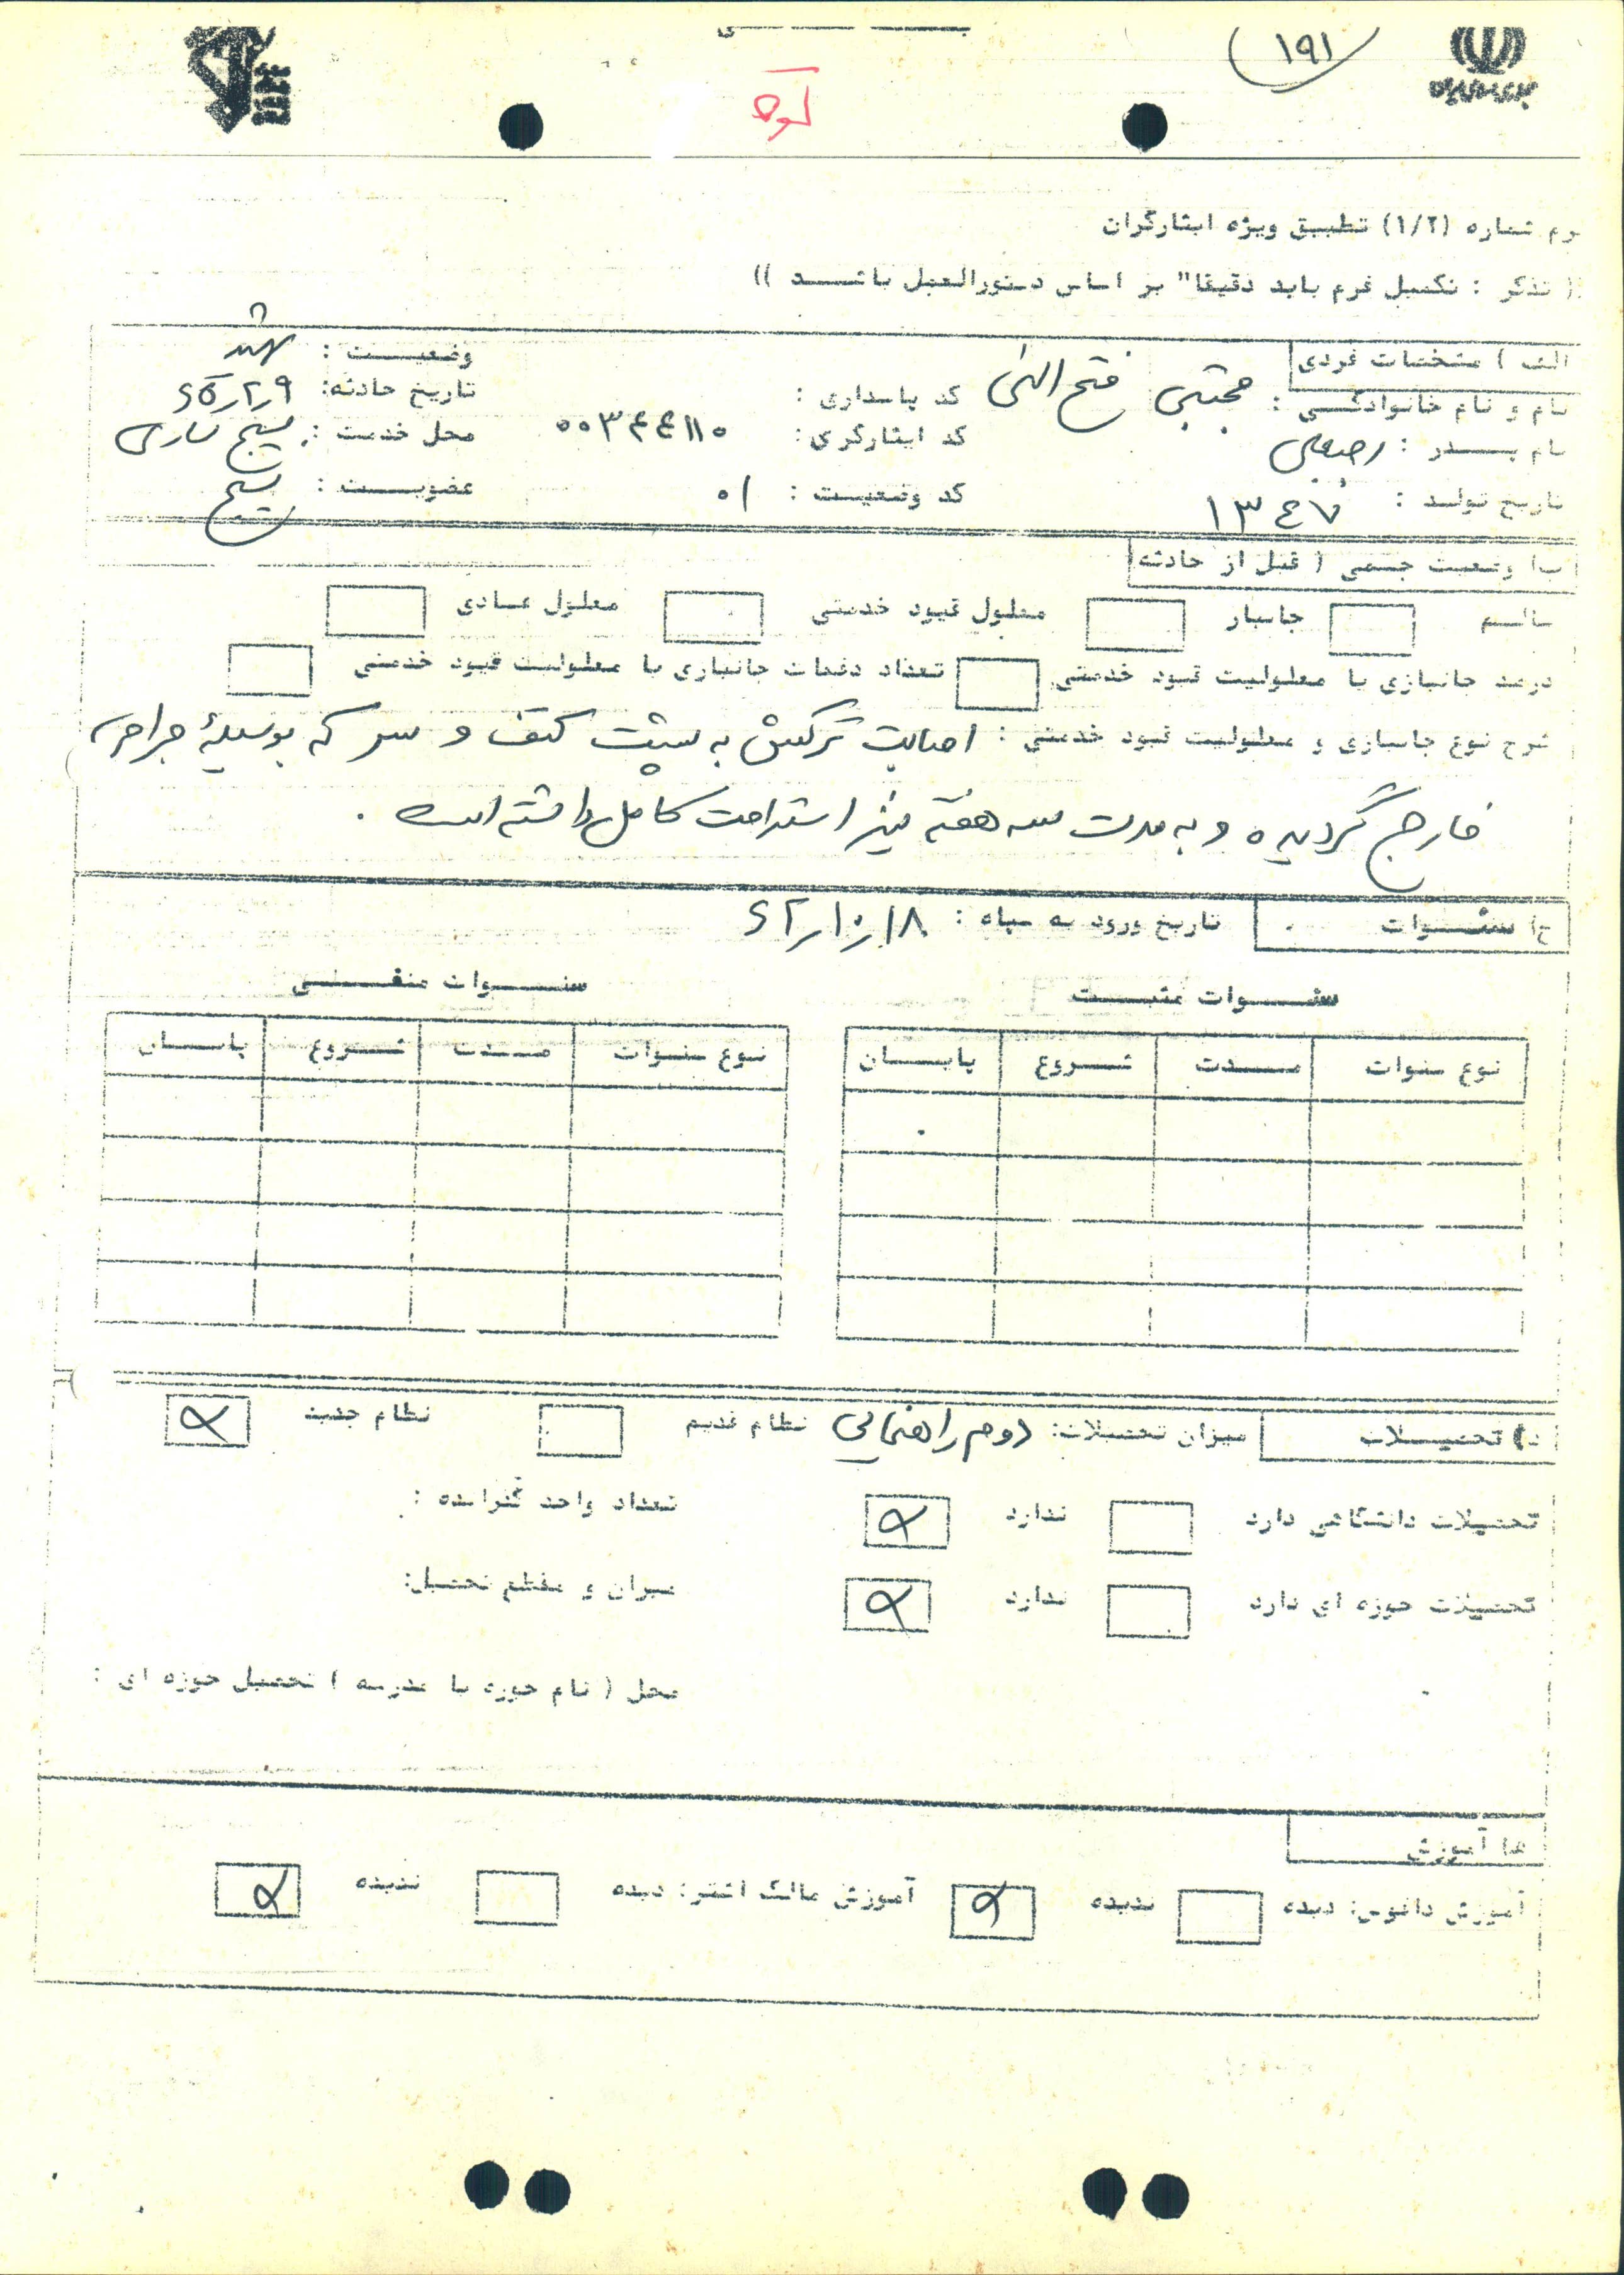 ۱۹۱
جمهوری اسلامی ایران
فرم شماره (۱/۲) تطبیق ویژه ایثارگران
(( تذکر : تکمیل فرم باید دقیقا" بر اساس دستورالعمل باشد ))
الف ) مشخصات فردی
نام و نام خانوادگی : مجتبی فتح الهی کد پاسداری : وضعیت : شهید
تاریخ حادثه: ۶۵/۲/۹
نام پدر : رجبعلی کد ایثارگری: ۰۰۳۴۴۱۱۰ محل خدمت : بسیج ساری
تاریخ تولد : ۱۳۴۷ کد وضعیت : ۰۱ عضویت : بسیج
ب) وضعیت جسمی ( قبل از حادثه)
سالم جانباز معلول قیود خدمتی معلول عادی
درصد جانبازی یا معلولیت قیود خدمتی تعداد دفعات جانبازی یا معلولیت قیود خدمتی
شرح نوع جانبازی و معلولیت قیود خدمتی : اصابت ترکش به پشت کتف و سر که بوسیلهٔ جراحی
خارج گردیده و به مدت سه هفته نیز استراحت کامل داشته است .
ج) سنوات تاریخ ورود به سپاه : ۶۲/۱۰/۱۸
سنوات مثبت سنوات منفی
نوع سنوات مدت شروع پایان نوع سنوات مدت شروع پایان
د) تحصیلات میزان تحصیلات: دوم راهنمایی نظام قدیم نظام جدید
تحصیلات دانشگاهی دارد ندارد تعداد واحد گذرانده :
تحصیلات حوزه ای دارد ندارد میزان و مقطع تحصیل:
محل ( نام حوزه یا مدرسه ) تحصیل حوزه ای :
ه) آموزش
آموزش دافوس: دیده ندیده آموزش مالک اشتر: دیده ندیده